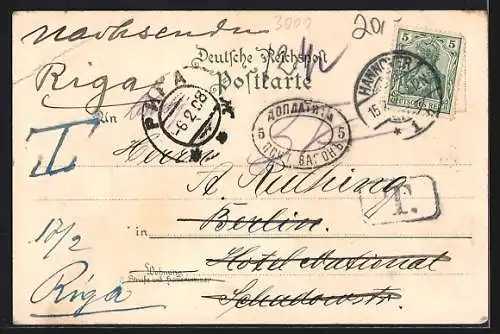 3000
20.-
Nachsenden
Riga
Deutsche Reichspost
Postkarte
РИГА
-6.2.08
HANNOVER
15
* 1
5
DEUTSCHES REICH
An
ДОПЛАТИТЬ
5 5
ПОЧТ. ВАГОНЪ
T
Herrn
A. Ruthing
T.
Berlin
in
Hotel National
Schadowstr.
17/2
Riga
Wohnung
(Straße und Hausnummer)